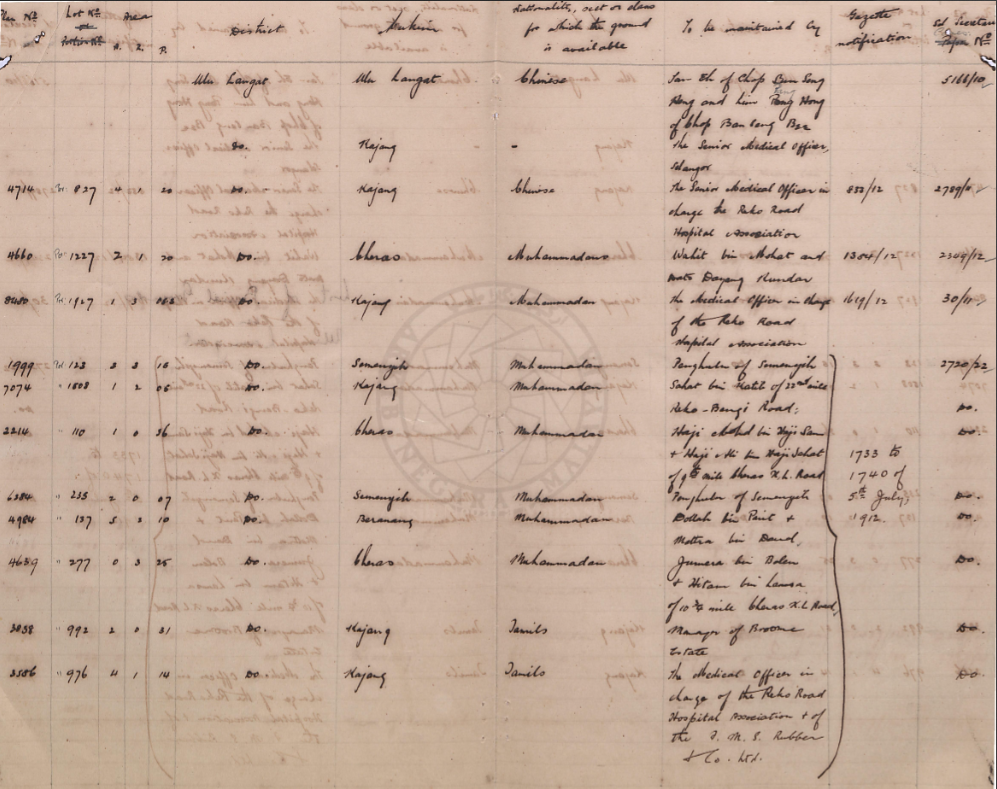 Plan No Lot No or Portion No Area A. R. P. District Mukim Nationality, sect or class for which the ground is available To be maintained by Gazette notification Sel. Secretariat Paper No
Ulu Langat Ulu Langat Chinese San Eh of Chop Ban Song 5166/10
Heng and Lim Peng Hong
of Chop Ban Seng Bee
Do. Kajang - The Senior Medical Officer,
Selangor
4714 Por 827 4 1 20 Do. Kajang Chinese The Senior Medical Officer in 832/12
charge the Reko Road
Hospital Association
4660 Por 1227 2 1 20 Do. Cheras Muhammadans Wahit bin Mohat and 1304/12 2309/12
Mata Dayang Kundar
8480 1927 1 3 Do. Kajang Muhammadan The Medical Officer in charge 1619/12 30/11
of the Reko Road
Hospital Association
1999 123 3 3 16 Do. Semenyih Muhammadan Penghulu of Semenyih 2720/22
7074 " 1808 1 2 05 Do. Kajang Muhammadan Sahat bin Katib of 22nd mile
Reko-Bangi Road; Do.
2214 " 110 1 0 36 Do. Cheras Muhammadan Haji Mohd bin Haji San Do.
+ Haji Ali bin Haji Sahat 1733 to
of 9th mile Cheras K.L. Road 1740 of
6384 " 235 2 0 07 Do. Semenyih Muhammadan Penghulu of Semenyih 5th July, Do.
4984 " 137 5 2 10 Do. Beranang Muhammadan Dollah bin Paint + 1912. Do.
bin Daud,
4659 " 277 0 3 25 Cheras Muhammadan Jumera bin Bolen Do.
+ Hitam bin Lawsa
of 10¾ mile Cheras K.L Road
3038 " 992 2 0 31 Do. Kajang Tamils Manager of Broome Do.
Estate
3506 " 976 4 1 14 Do. Kajang Tamils The Medical Officer in Do.
charge of the Reko Road
Hospital Association + of
the F. M. S. Rubber
+ Co. Ltd.